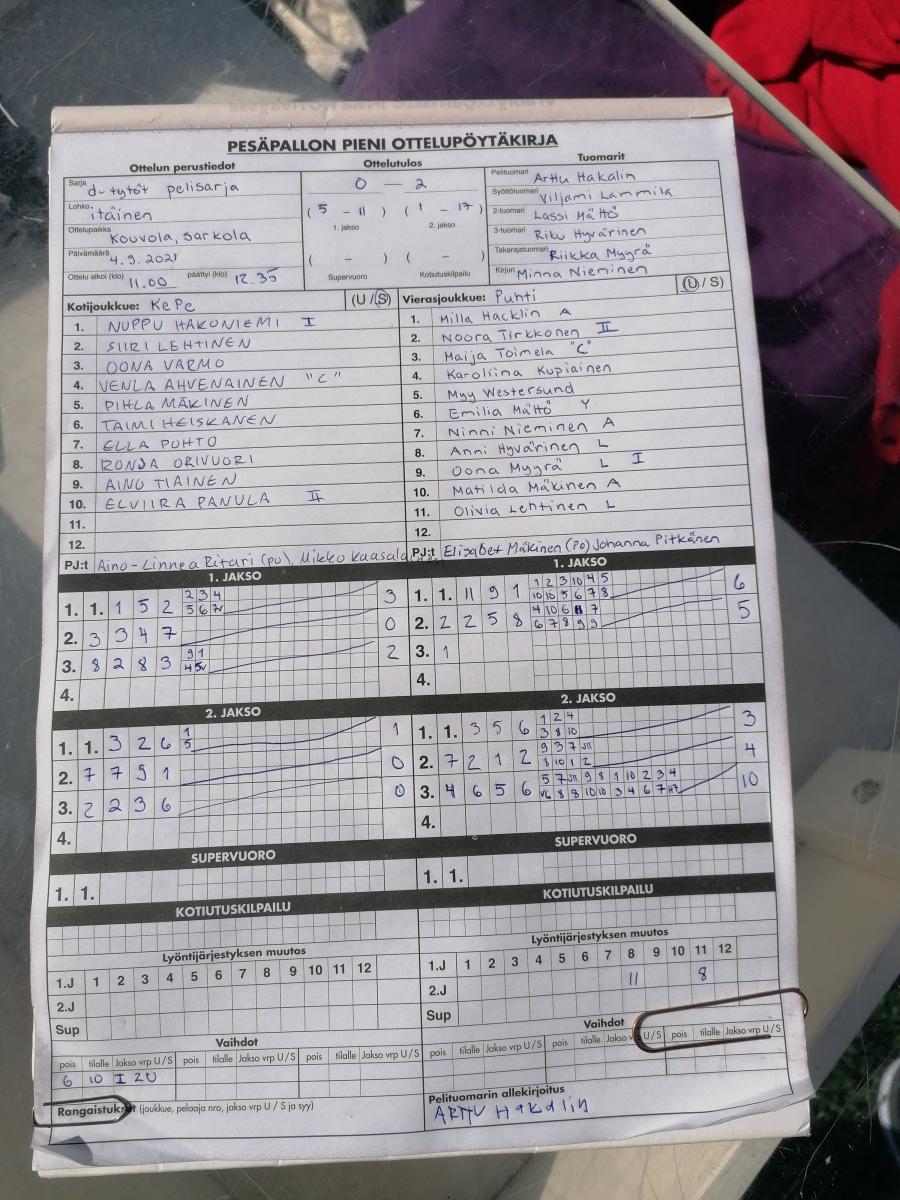 PESÄPALLON PIENI OTTELUPÖYTÄKIRJA
Ottelun perustiedot
Ottelutulos
Tuomarit
Sarja d-tytöt pelisarja
Lohko itäinen
Ottelupaikka Kouvola, sarkola
Päivämäärä 4.9.2021
Ottelu alkoi (klo) 11.00 päättyi (klo) 12.35
0 — 2
( 5 - 11 ) ( 1 - 17 )
1. jakso 2. jakso
( - ) ( - )
Supervuoro Kotiutuskilpailu
Pelituomari Arttu Hakalin
Syöttötuomari Viljami Lammila
2-tuomari Lassi Mättö
3-tuomari Riku Hyvärinen
Takarajatuomari Riikka Myyrä
Kirjuri Minna Nieminen
Kotijoukkue: KePe (U/S)
1. NUPPU HAKONIEMI I
2. SIIRI LEHTINEN
3. OONA VARMO
4. VENLA AHVENAINEN "C"
5. PIHLA MÄKINEN
6. TAIMI HEISKANEN
7. ELLA POHTO
8. RONJA ORIVUORI
9. AINO TIAINEN
10. ELVIIRA PANULA II
11.
12.
PJ:t Aino-Linnea Ritari (po), Mikko
Vierasjoukkue: Puhti (U/S)
1. Milla Hacklin A
2. Noora Tirkkonen II
3. Maija Toimela "C"
4. Karoliina Kupiainen
5. Myy Westersund
6. Emilia Mättö Y
7. Ninni Nieminen A
8. Anni Hyvärinen L
9. Oona Myyrä L I
10. Matilda Mäkinen A
11. Olivia Lehtinen L
12.
PJ:t Elisabet Mäkinen (po) Johanna Pitkänen
1. JAKSO
1. 1. 1 5 2 2 3 4 3
5 6
2. 3 3 4 7 0
3. 8 2 8 3 9 1 2
4 5
4.
1. JAKSO
1. 1. 11 9 1 1 2 3 10 4 5 6
10 10 5 6 7 8
2. 2 2 5 8 4 10 6 7 5
6 7 8 9 9
3. 1
4.
2. JAKSO
1. 1. 3 2 6 1 1
5
2. 7 7 9 1 0
3. 2 2 3 6 0
4.
2. JAKSO
1. 1. 3 5 6 1 2 4 3
3 8 10
2. 7 2 1 2 9 3 7 4
8 10 1 2
3. 4 6 5 6 5 7 9 8 1 10 2 3 4 10
8 8 10 10 3 4 6 7
4.
SUPERVUORO
1. 1.
KOTIUTUSKILPAILU
SUPERVUORO
1. 1.
KOTIUTUSKILPAILU
Lyöntijärjestyksen muutos
1.J 1 2 3 4 5 6 7 8 9 10 11 12
2.J
Sup
Lyöntijärjestyksen muutos
1.J 1 2 3 4 5 6 7 8 9 10 11 12
2.J 11 8
Sup
Vaihdot
pois tilalle Jakso vrp U/S pois tilalle Jakso vrp U/S pois tilalle Jakso vrp U/S
6 10 I 2U
Vaihdot
pois tilalle Jakso vrp U/S pois tilalle Jakso U/S pois tilalle Jakso vrp U/S
Rangaistukset (joukkue, pelaaja nro, jakso vrp U / S ja syy)
Pelituomarin allekirjoitus
Arttu Hakalin